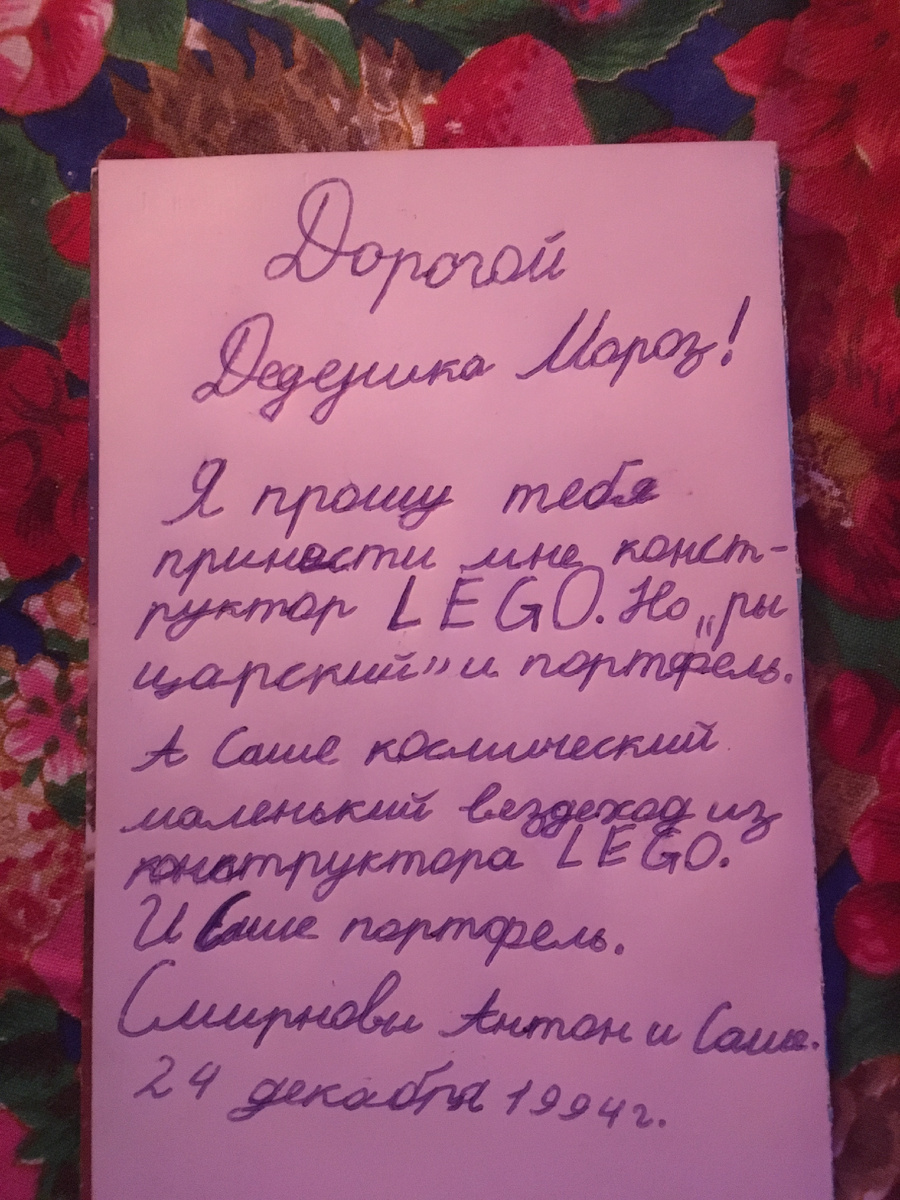 Дорогой
Дедушка Мороз!
Я прошу тебя
принести мне конст-
руктор LEGO. Но „ры
царский" и портфель.
А Саше космический
маленький вездеход из
конструктора LEGO.
И Саше портфель.
Смирновы Антон и Саша.
24 декабря 1994г.